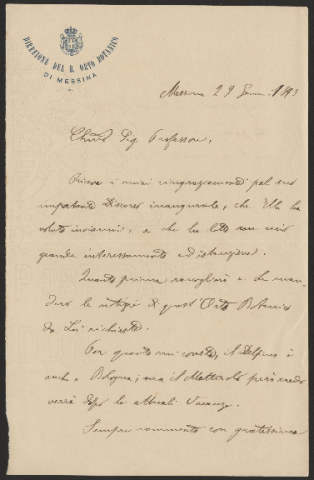 DIREZIONE DEL R. ORTO BOTANICO
DI MESSINA
Messina 29 Genn. 1893
Chiar.o Sig. Professore,
Riceva i miei ringraziamenti pel suo
importante Discorso inaugurale, che Ella ha
voluto inviarmi, e che ho letto con mio
grande interessamento ed istruzione.
Quanto prima raccoglierò e Le man-
derò le notizie di quest'Orto Botanico
da Lei richieste.
Per quanto mi consta, il Delpino è
anche a Bologna; ma il Mattirolo
verrà dopo le attuali vacanze.
Sempre con gratissima